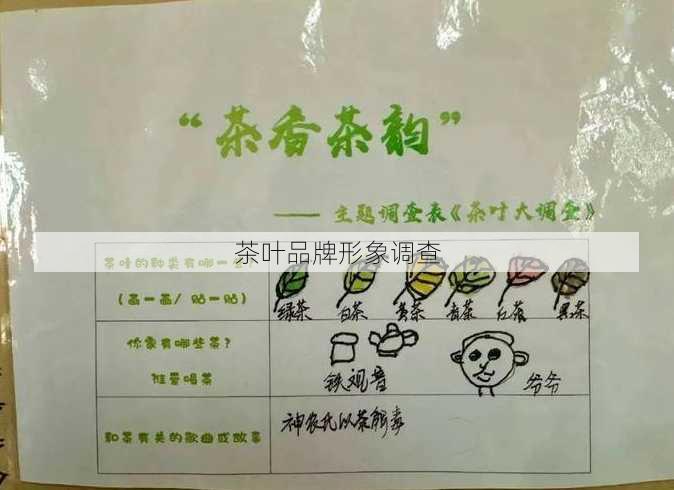 “茶香茶韵”
—— 主题调查表《茶叶大调查》
茶叶品牌形象调查
茶叶的种类有哪一些？
（画一画/ 贴一贴）
绿茶 白茶 黄茶 青茶 红茶 黑茶
你家有哪些茶？
谁爱喝茶
铁观音 爷爷
和茶有关的歌曲或故事
神农氏以茶解毒